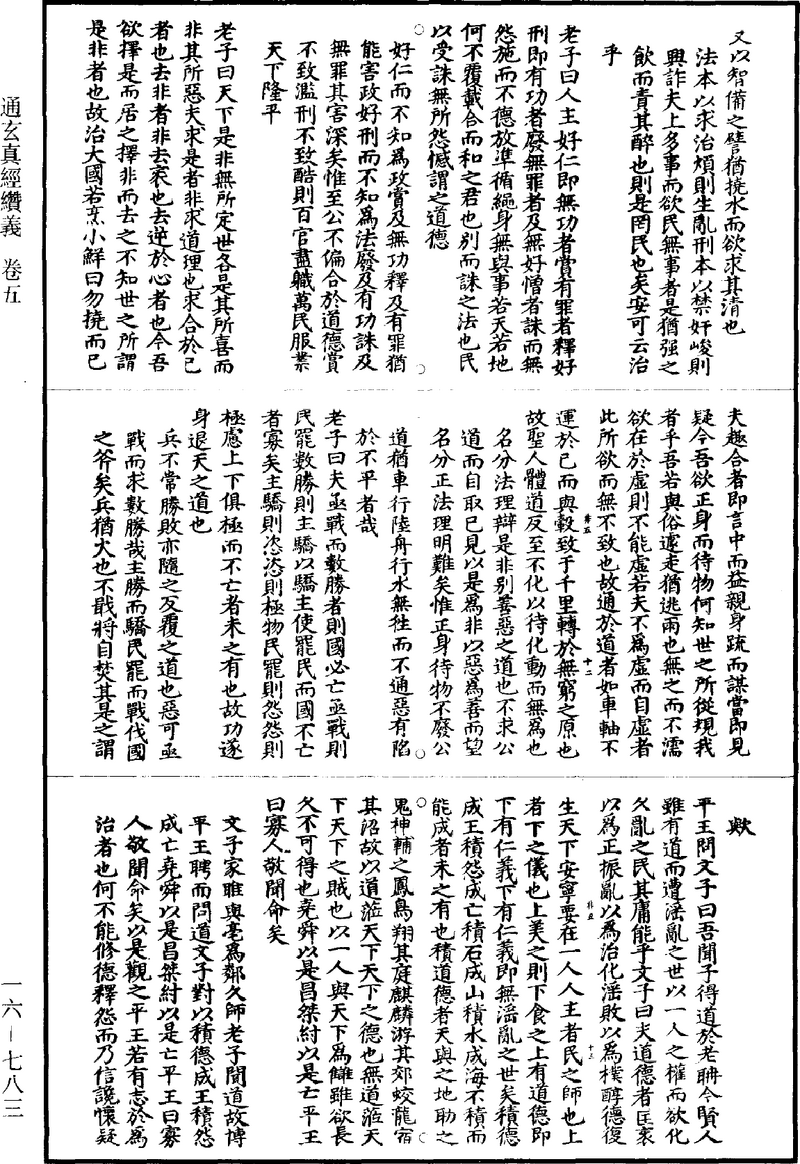 又以智備之譬猶撓水而欲求其清也
法本以求治煩則生亂刑本以禁奸峻則
興詐夫上多事而欲民無事者是猶强之
飲而責其醉也則是罔民也矣安可云治
乎
老子曰人主好仁即無功者賞有罪者釋好
刑即有功者廢無罪者及無好憎者誅而無
怨施而不德放準循繩身無與事若天若地
何不覆載合而和之君也別而誅之法也民
以受誅無所怨憾謂之道德
好仁而不知為政賞及無功釋及有罪猶
能害政好刑而不知為法廢及有功誅及
無罪其害深矣惟至公不偏合於道德賞
不致濫刑不致酷則百官盡職萬民服業
天下隆平
老子曰天下是非無所定世各是其所喜而
非其所惡夫求是者非求道理也求合於己
者也去非者非去衺也去逆於心者也今吾
欲擇是而居之擇非而去之不知世之所謂
是非者也故治大國若烹小鮮曰勿撓而已
夫趣合者即言中而益親身疏而謀當即見
疑今吾欲正身而待物何知世之所從規我
者乎吾若與俗遽走猶逃雨也無之而不濡
欲在於虛則不能虛若夫不為虛而自虛者
此所欲而無不致也故通於道者如車軸不
運於己而與轂致于千里轉於無窮之原也
故聖人體道反至不化以待化動而無為也
名分法理辯是非別善惡之道也不求公
道而自取己見以是為非以惡為善而望
名分正法理明難矣惟正身待物不廢公
道猶車行陸舟行水無往而不通惡有陷
於不平者哉
老子曰夫亟戰而數勝者則國必亡亟戰則
民罷數勝則主驕以驕主使罷民而國不亡
者寡矣主驕則恣恣則極物民罷則怨怨則
極慮上下俱極而不亡者未之有也故功遂
身退天之道也
兵不常勝敗亦隨之反覆之道也惡可亟
戰而求數勝哉主勝而驕民罷而戰伐國
之斧矣兵猶火也不戢將自焚其是之謂
歟
平王問文子曰吾聞子得道於老聃今賢人
雖有道而遭淫亂之世以一人之權而欲化
久亂之民其庸能乎文子曰夫道德者匡衺
以為正振亂以為治化淫敗以為樸醇德復
生天下安寧要在一人人主者民之師也上
者下之儀也上美之則下食之上有道德即
下有仁義下有仁義即無淫亂之世矣積德
成王積怨成亡積石成山積水成海不積而
能成者未之有也積道德者天與之地助之
鬼神輔之鳳鳥翔其庭麒麟游其郊蛟龍宿
其沼故以道蒞天下天下之德也無道蒞天
下天下之賊也以一人與天下為讎雖欲長
久不可得也堯舜以是昌桀紂以是亡平王
曰寡人敬聞命矣
文子家睢與亳為鄰久師老子聞道故博
平王聘而問道文子對以積德成王積怨
成亡堯舜以是昌桀紂以是亡平王曰寡
人敬聞命矣以是觀之平王若有志於為
治者也何不能修德釋怨而乃信讒懷疑
通玄真經纘義　卷五
一六－七八三